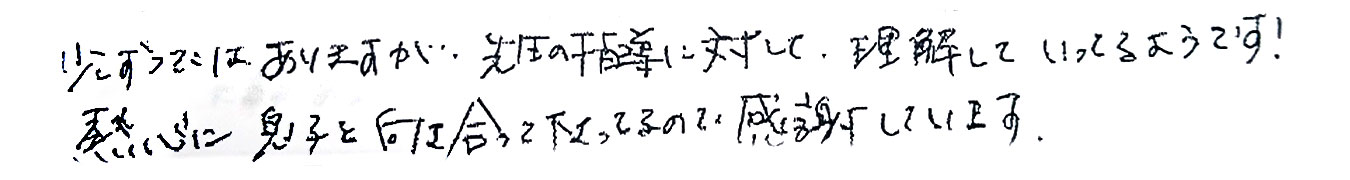 少しずつではありますが、先生の指導に対して、理解していってるようです!
熱心に息子と向き合って下さってるので感謝しています.